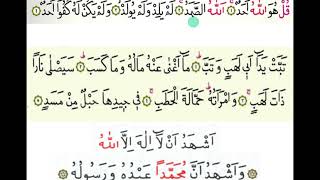 قُلْ هُوَ اللّٰهُ اَحَدٌ ۝ اَللّٰهُ الصَّمَدُ ۝ لَمْ يَلِدْ وَلَمْ يُولَدْ ۝ وَلَمْ يَكُنْ لَهُ كُفُوًا اَحَدٌ ۝
تَبَّتْ يَدَٓا اَبِي لَهَبٍ وَتَبَّ ۝ مَٓا اَغْنٰى عَنْهُ مَالُهُ وَمَا كَسَبَ ۝ سَيَصْلٰى نَارًا
ذَاتَ لَهَبٍ ۝ وَامْرَاَتُهُ حَمَّالَةَ الْحَطَبِ ۝ فِي جِيدِهَا حَبْلٌ مِنْ مَسَدٍ ۝
اَشْهَدُ اَنْ لَٓا اِلٰهَ اِلَّا اللّٰهُ
وَاَشْهَدُ اَنَّ مُحَمَّدًا عَبْدُهُ وَرَسُولُهُ